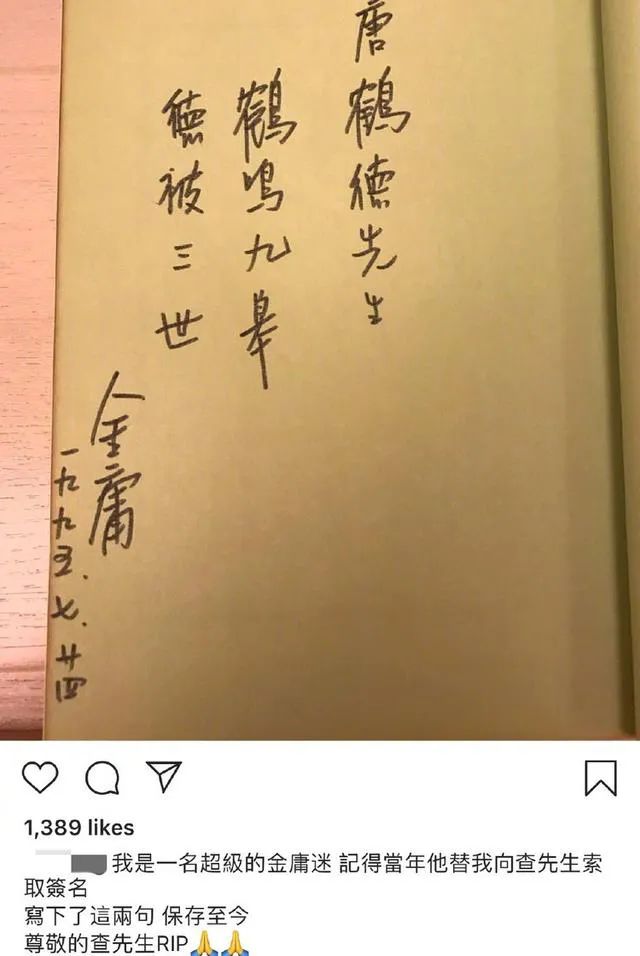 唐鶴德先生
鶴鳴九皋
德被三世
金庸
一九九五.七.廿四
1,389 likes
我是一名超級的金庸迷 記得當年他替我向查先生索
取簽名
寫下了這兩句 保存至今
尊敬的查先生RIP🙏🙏